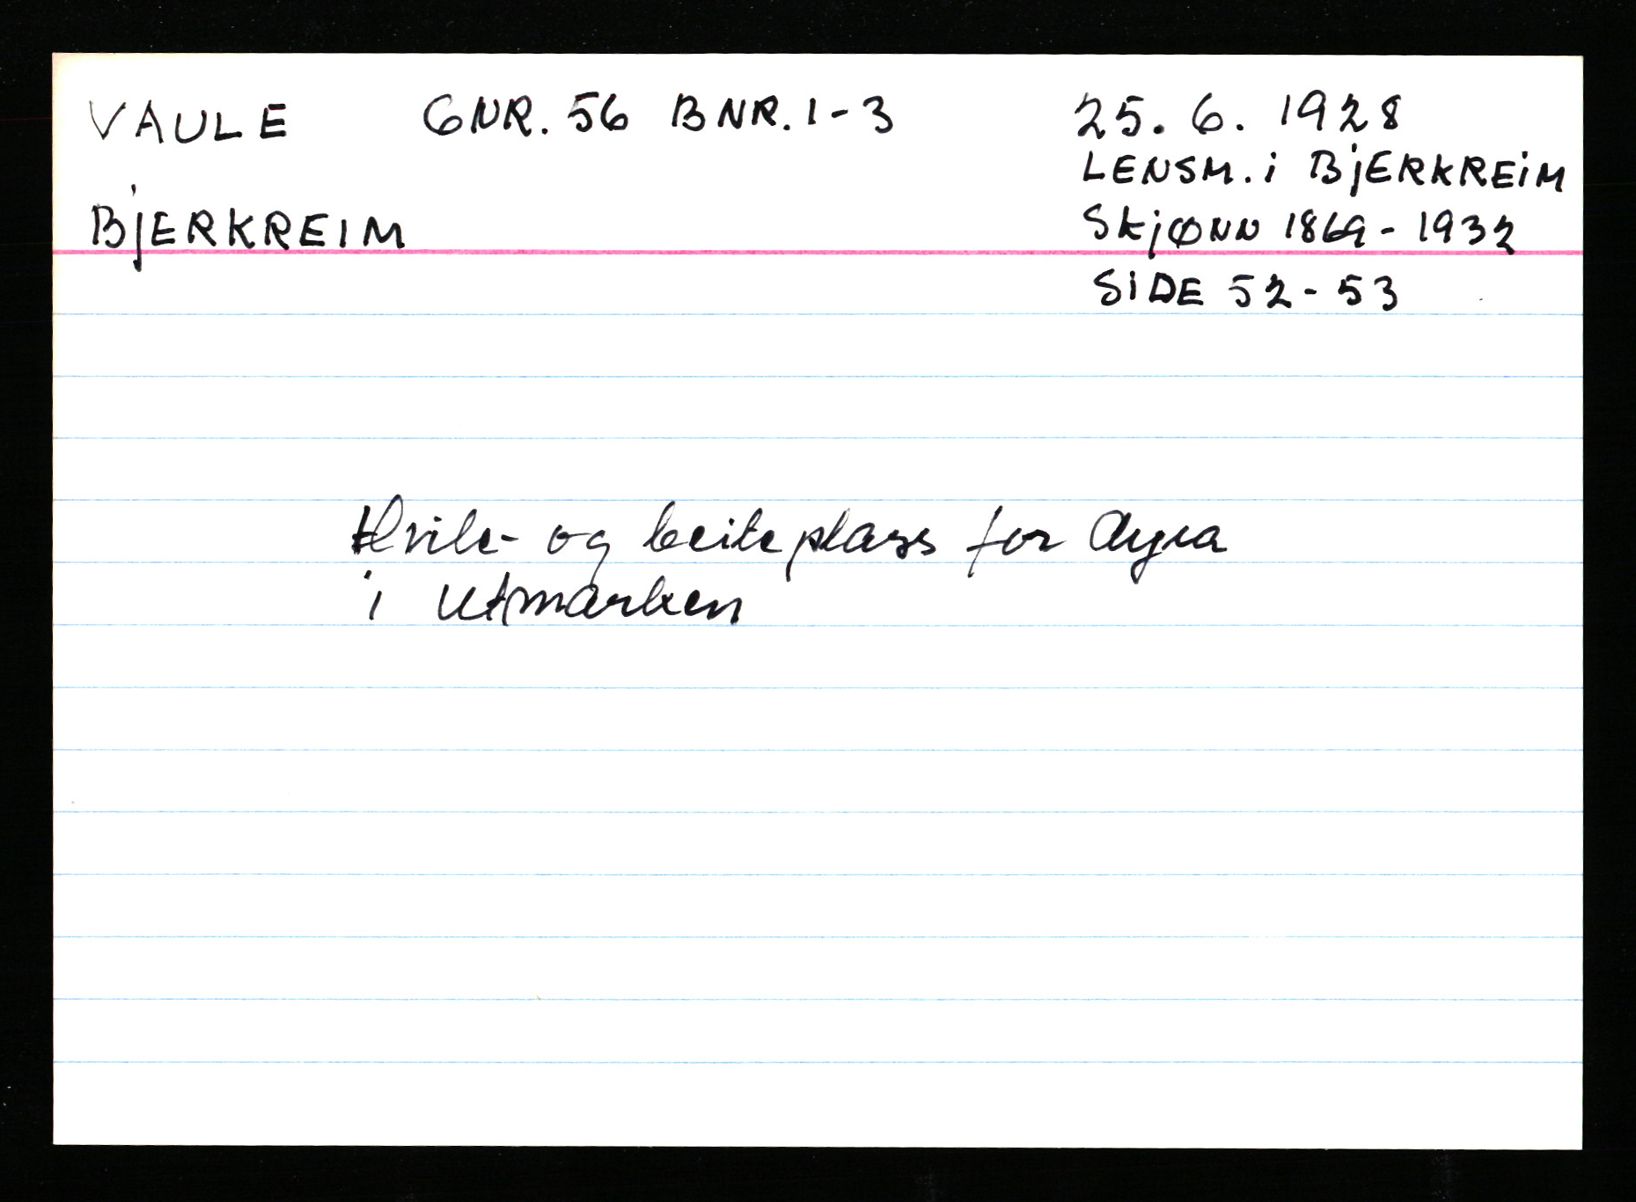 VAULE GNR. 56 BNR. 1-3 25. 6. 1928
LENSM. i BjERKREiM
BjERKREIM SKjØNN 1869 - 1932
SiDE 52 - 53
Hvile- og beiteplass for dyra
i utmarken